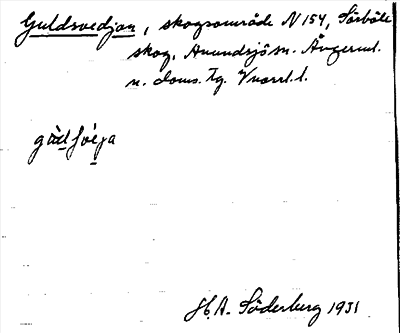 Guldsvedjan, skogsområde N 154, Sörböle
skog, Anundsjö sn. Ångerml.
n. doms. Tg. Vnorrl. l.
H.A. Söderberg 1931